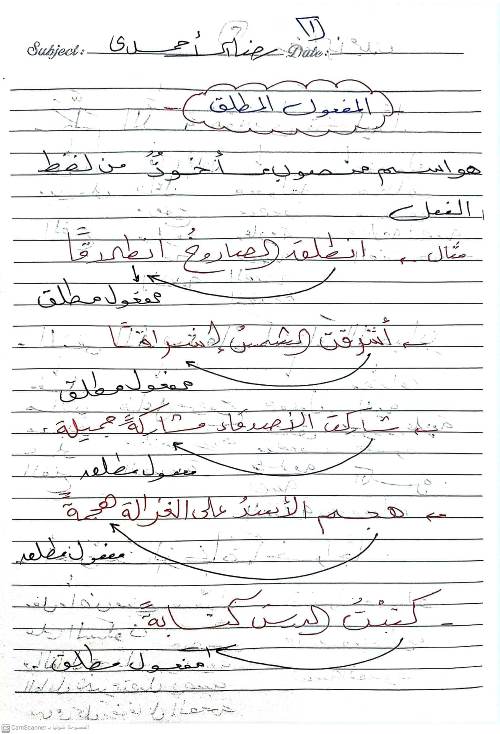 ١
Subject: رضاك أحمدى Date:
المفعول المطلق
هو اسم منصوب مأخوذٌ من لفظ
الفعل
مثال - انطلقَ الصاروخُ انطلاقًا
مفعول مطلق
- أشرقت الشمسُ إشراقًا
مفعول مطلق
- شاركَ الأصدقاء مشاركةً جميلة
مفعول مطلق
- هجم الأسدُ على الغزالة هجمةً
مفعول مطلق
- كتبْتُ الدرسَ كتابةً
مفعول مطلق
CamScanner